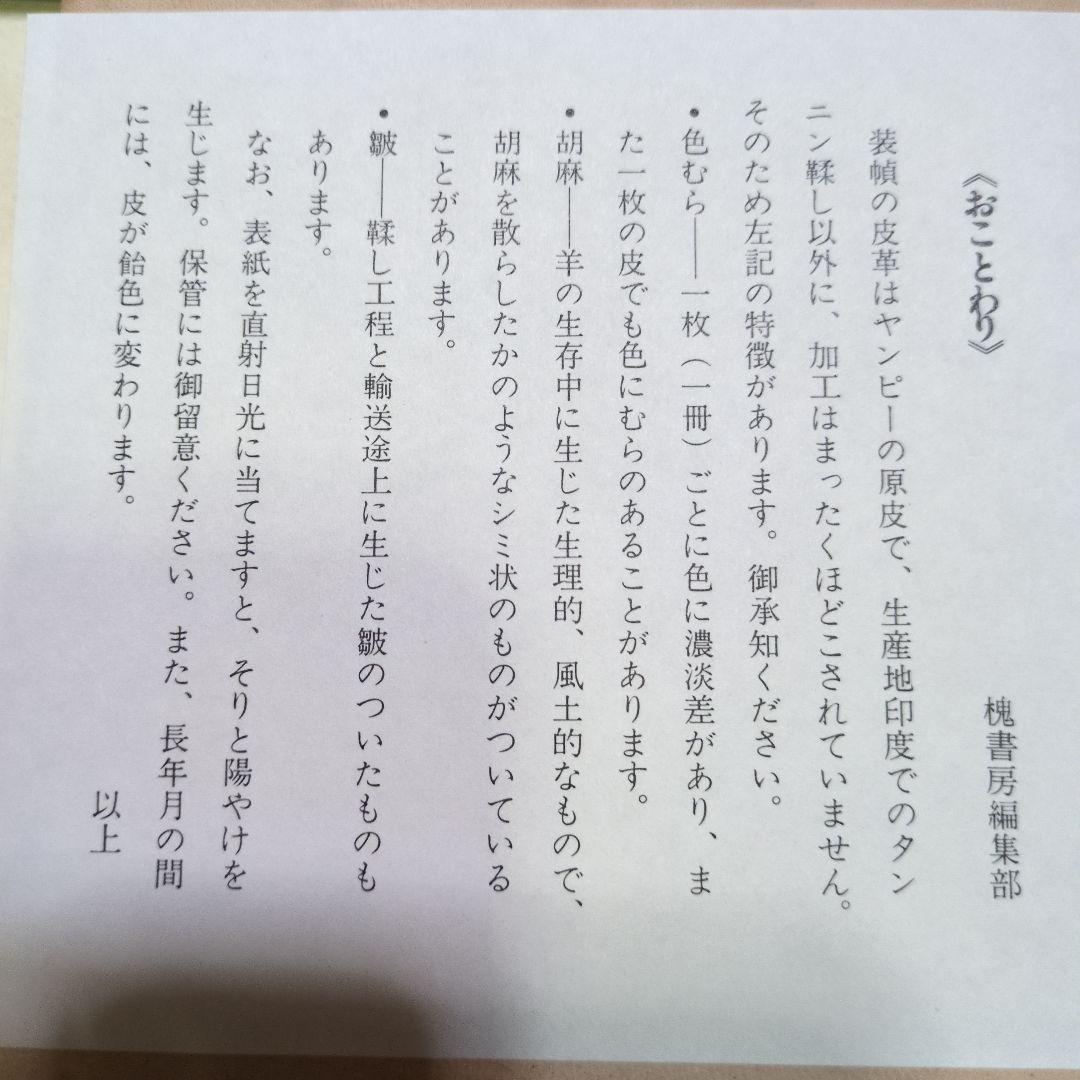 《おことわり》
槐書房編集部
装幀の皮革はヤンピーの原皮で、生産地印度でのタン
ニン鞣し以外に、加工はまったくほどこされていません。
そのため左記の特徴があります。御承知ください。
•色むら——一枚（一冊）ごとに色に濃淡差があり、ま
た一枚の皮でも色にむらのあることがあります。
•胡麻——羊の生存中に生じた生理的、風土的なもので、
胡麻を散らしたかのようなシミ状のものがついている
ことがあります。
•皺——鞣し工程と輸送途上に生じた皺のついたものも
あります。
なお、表紙を直射日光に当てますと、そりと陽やけを
生じます。保管には御留意ください。また、長年月の間
には、皮が飴色に変わります。
以上